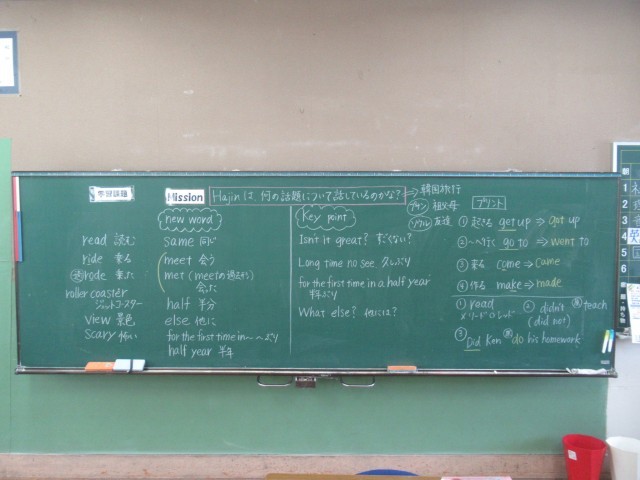 学習課題
Mission Hajinは、何の話題について話しているのかな? ⇒韓国旅行
プサン 祖父母
ソウル 友達
new word
read 読む
ride 乗る
過 rode 乗った
roller coaster
ジェットコースター
view 景色
scary 怖い
same 同じ
meet 会う
met (meetの過去形)
会った
half 半分
else 他に
for the first time in～ ～ぶり
half year 半年
Key point
Isn't it great? すごくない?
Long time no see. 久しぶり
for the first time in a half year
半年ぶり
What else? 他には?
プリント
① 起きる get up ⇒ got up
② ～へ行く go to ⇒ went to
③ 来る come ⇒ came
④ 作る make ⇒ made
① read
② didn't 原 teach
(did not)
③ Did Ken 原 do his homework